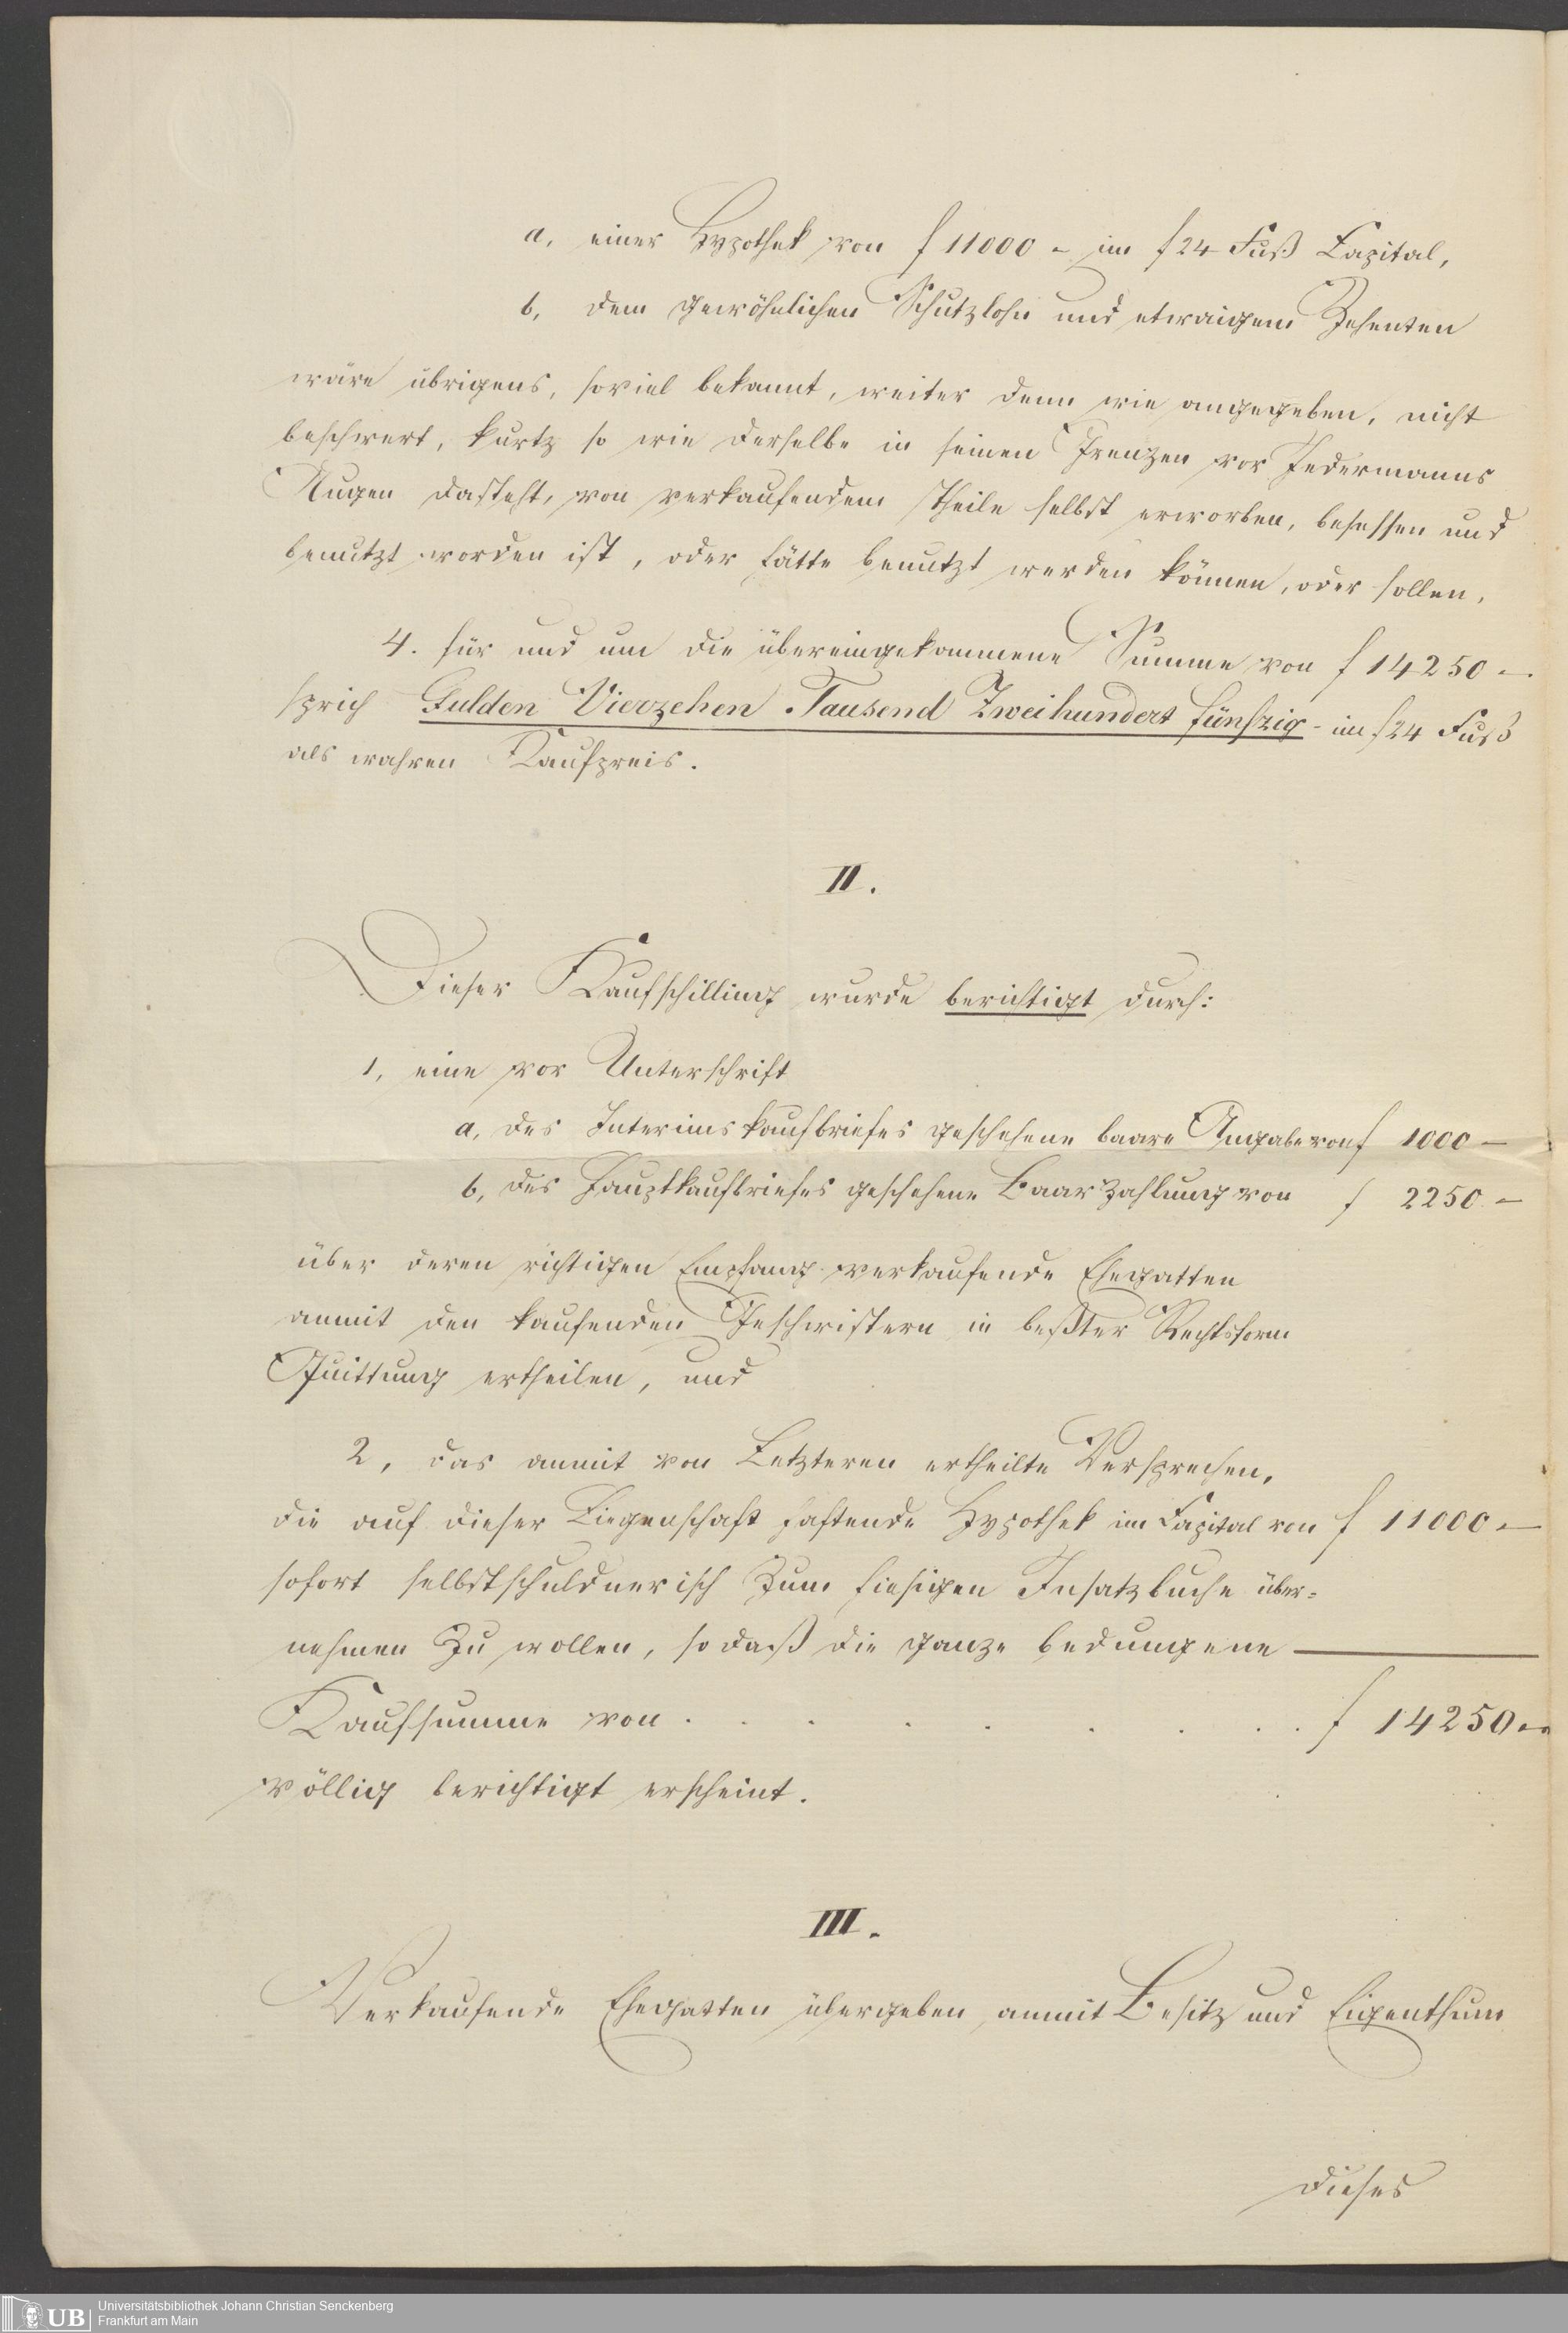 a, einer Hypothek von f 11000 – im f 24 Fuß Capital,
b, dem gewöhnlichen Schutzlohn und etwaigem Zehenten
wäre übrigens, soviel bekannt, weiter denn wie angegeben, nicht
beschwert, kurtz so wie derselbe in seinen Grenzen vor Jedermanns
Augen dasteht, von verkaufendem Theile selbst erworben, besessen und
benutzt worden ist, oder hätte benutzt werden können, oder sollen,
4. für und um die übereingekommene Summe von f 14250 –.
sprich Gulden Vierzehen Tausend Zweihundert fünfzig – im f 24 Fuß
als wahren Kaufpreis.
II.
Dieser Kaufschilling wurde berichtigt durch:
1, eine vor Unterschrift
a, des Interimskaufbriefes geschehene baare Angabe von f 1000 –
b, des Hauptkaufbriefes geschehene Baarzahlung von f 2250 –
über deren richtigen Empfang verkaufende Ehegatten
anmit den kaufenden Geschwistern in beßter Rechtsform
Quittung ertheilen, und
2, das anmit von Letzteren ertheilte Versprechen,
die auf dieser Liegenschaft haftende Hypothek im Capital von f 11000 –
sofort selbstschuldnerisch zum hiesigen Insatzbuche über-
nehmen zu wollen, so daß die ganze bedungene
Kaufsumme von . . . . . . . . f 14250 –
völlig berichtigt erscheint.
III.
Verkaufende Ehegatten übergeben anmit Besitz und Eigenthum
dieses
UB Universitätsbibliothek Johann Christian Senckenberg
Frankfurt am Main